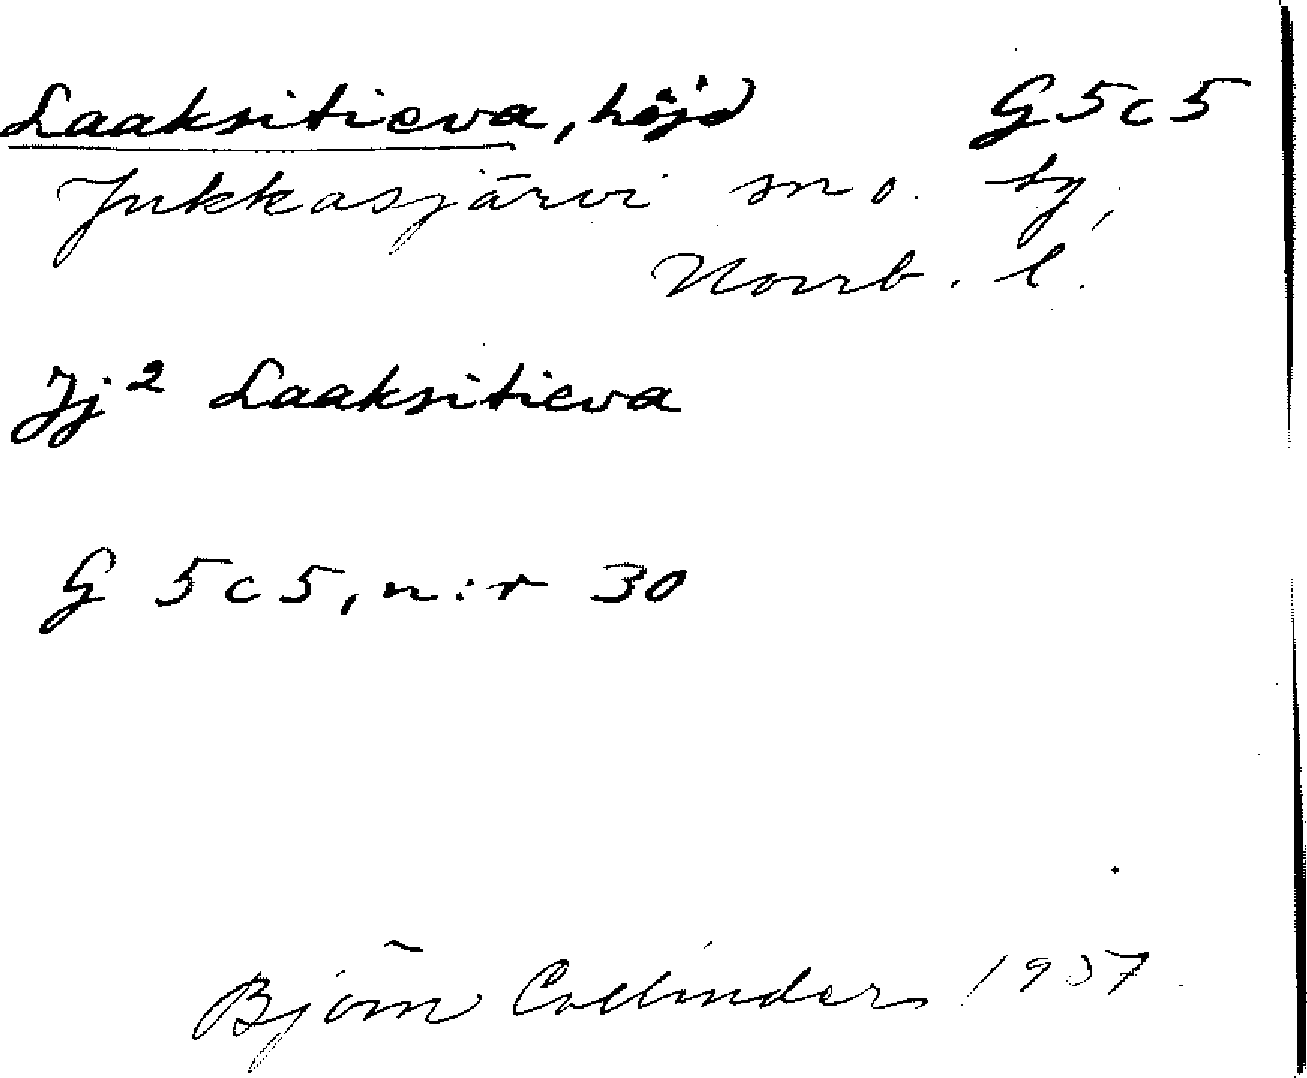 Laaksitieva, höjd G5c5
Jukkasjärvi sn o. by,
Norrb. l.
Jj² Laaksitieva
G 5c5, n:r 30
Björn Collinder 1937